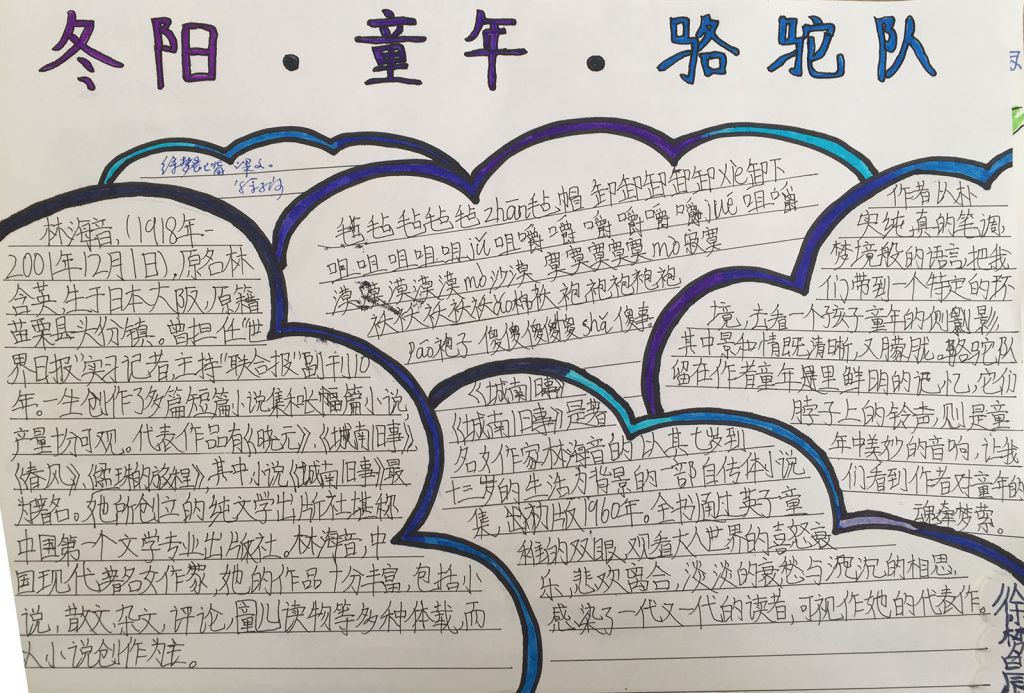 冬阳·童年·骆驼队
课文。
林海音,(1918年-
2001年12月1日),原名林
含英,生于日本大阪,原籍
苗栗县头份镇。曾担任"世
界日报"实习记者,主持"联合报"副刊10
年。一生创作了多篇短篇小说集和长篇小说
产量十分可观。代表作品有《晚元》、《城南旧事》
《春风》《的旅程》,其中小说《城南旧事》最
为著名。她所创立的纯文学出版社堪称
中国第一个文学专业出版社。林海音,中
国现代著名女作家,她的作品十分丰富,包括小
说,散文,杂文,评论,儿读物等多种体载,而
以小说创作为主。
毡毡毡毡毡zhān毡帽 卸卸卸卸卸xiè卸下
咀咀咀咀咀jǔ咀嚼 嚼嚼嚼嚼嚼jué咀嚼
漠漠漠漠漠mò沙漠 寞寞寞寞寞mò寂寞
袄袄袄袄袄ǎo棉袄 袍袍袍袍袍
páo袍子 傻傻傻傻傻shǎ傻事
《城南旧事》
《城南旧事》是著
名女作家林海音的以其七岁到
十三岁的生活为背景的一部自传体小说
集,初版1960年。全书通过英子童
稚的双眼,观看大人世界的喜怒哀
乐,悲欢离合,淡淡的哀愁与沉沉的相思,
感染了一代又一代的读者,可视作她的代表作。
作者以朴
实纯真的笔调,
梦境般的语言,把我
们带到一个特定的环
境,去看一个孩子童年的侧影,
其中景和情既清晰,又朦胧。骆驼队
留在作者童年是里鲜明的记忆,它们
脖子上的铃声则是童
年中美妙的音响,让我
们看到作者对童年的
魂牵梦萦。
徐梦晨